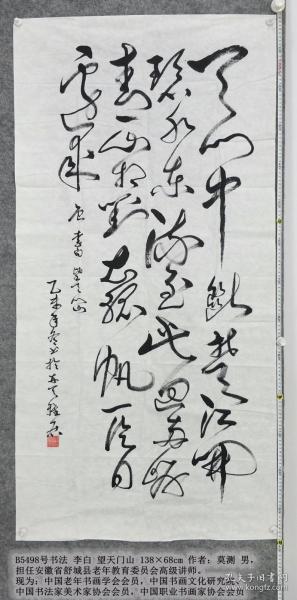 天門中斷楚江開
碧水東流至此迴兩岸
青山相對出孤帆一片日
邊來 李白 望天门山
乙未年冬
B5498号书法 李白 望天门山 138×68cm 作者：莫测 男，
担任安徽省舒城县老年教育委员会高级讲师。
现为：中国老年书画学会会员，中国书画文化研究会
中国书法家美术家协会会员，中国职业书画家协会会员